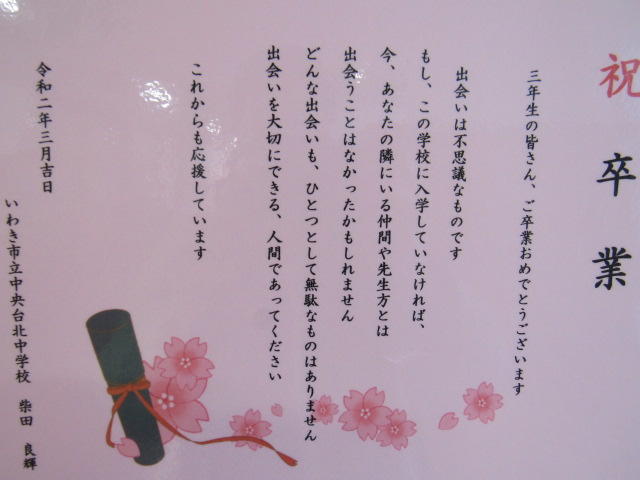 祝卒業
三年生の皆さん、ご卒業おめでとうございます
出会いは不思議なものです
もし、この学校に入学していなければ、
今、あなたの隣にいる仲間や先生方とは
出会うことはなかったかもしれません
どんな出会いも、ひとつとして無駄なものはありません
出会いを大切にできる、人間であってください
これからも応援しています
令和二年三月吉日
いわき市立中央台北中学校 柴田 良輝